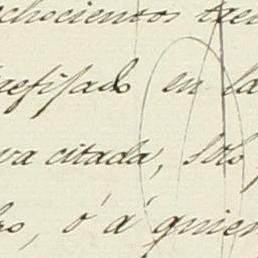 echocientos tre
refijado en la
va citada, solo
os, ó á quien